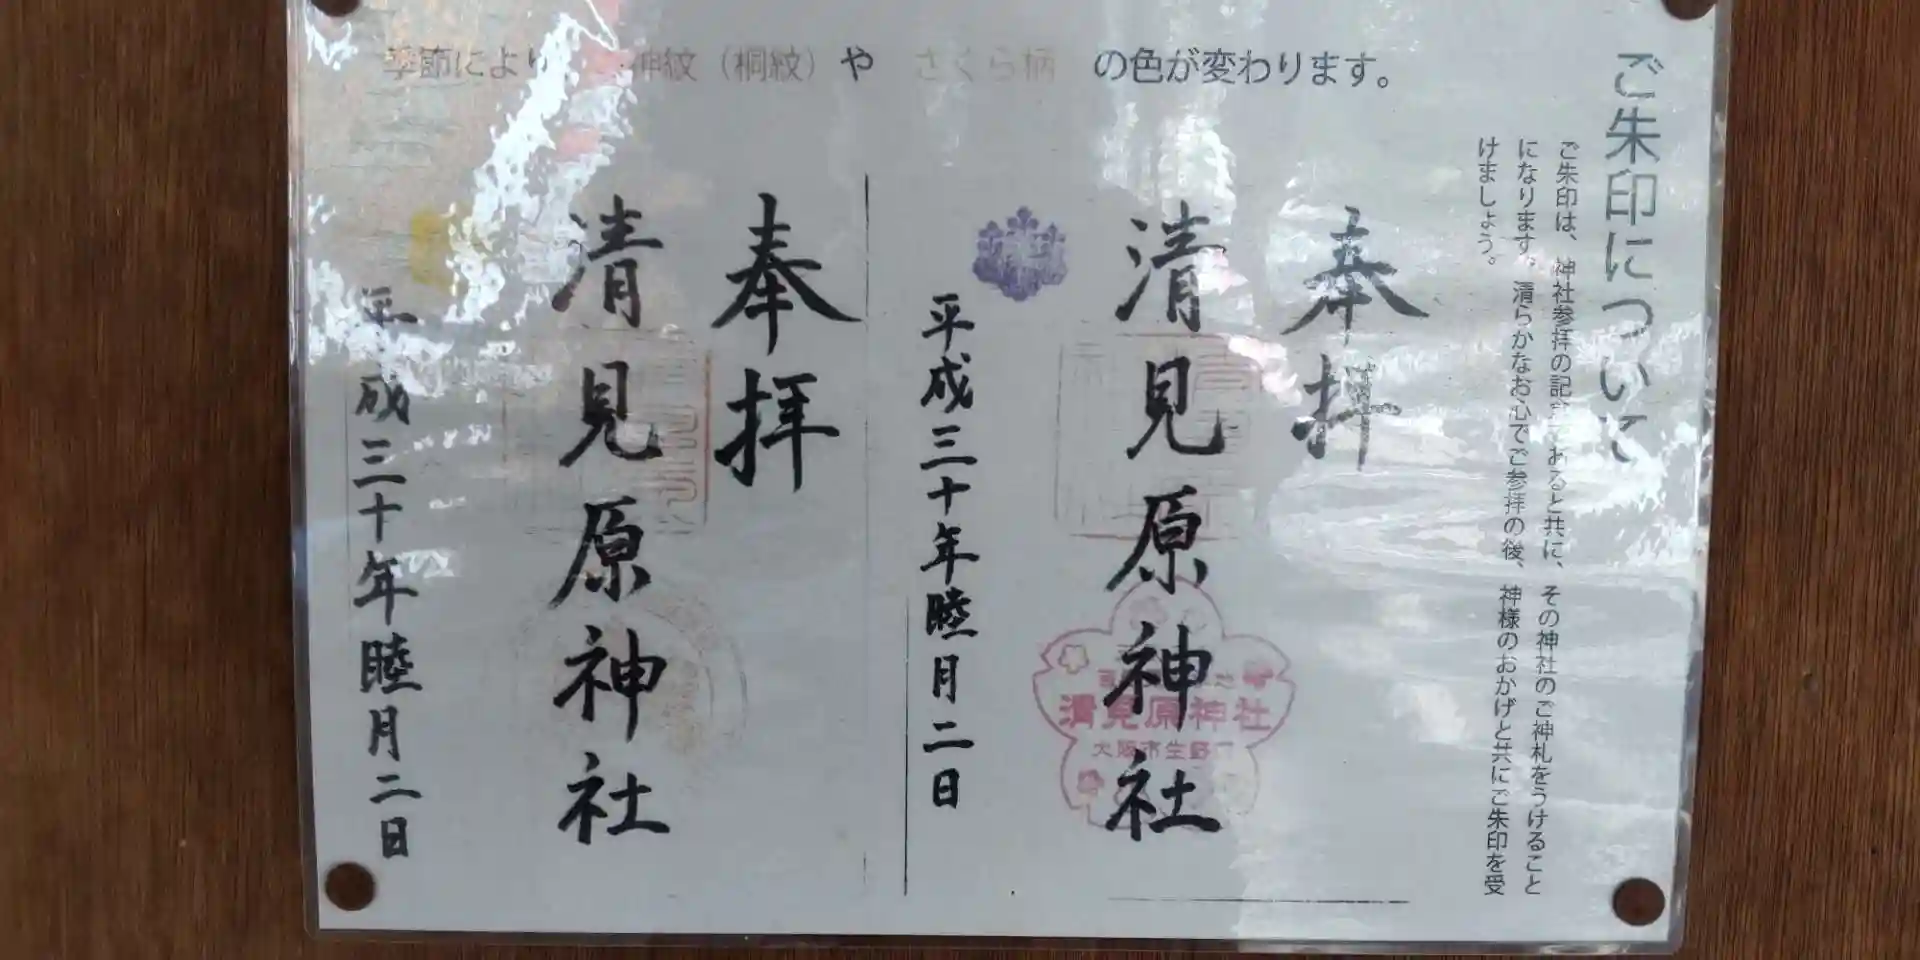 季節により 神紋（桐紋）や さくら柄 の色が変わります。
ご朱印について
ご朱印は、神社参拝の記念であると共に、その神社のご神札をうけること
になります。清らかなお心でご参拝の後、神様のおかげと共にご朱印を受
けましょう。
奉拝
清見原神社
平成三十年睦月二日
清見原神社
大阪市生野
奉拝
清見原神社
平成三十年睦月二日